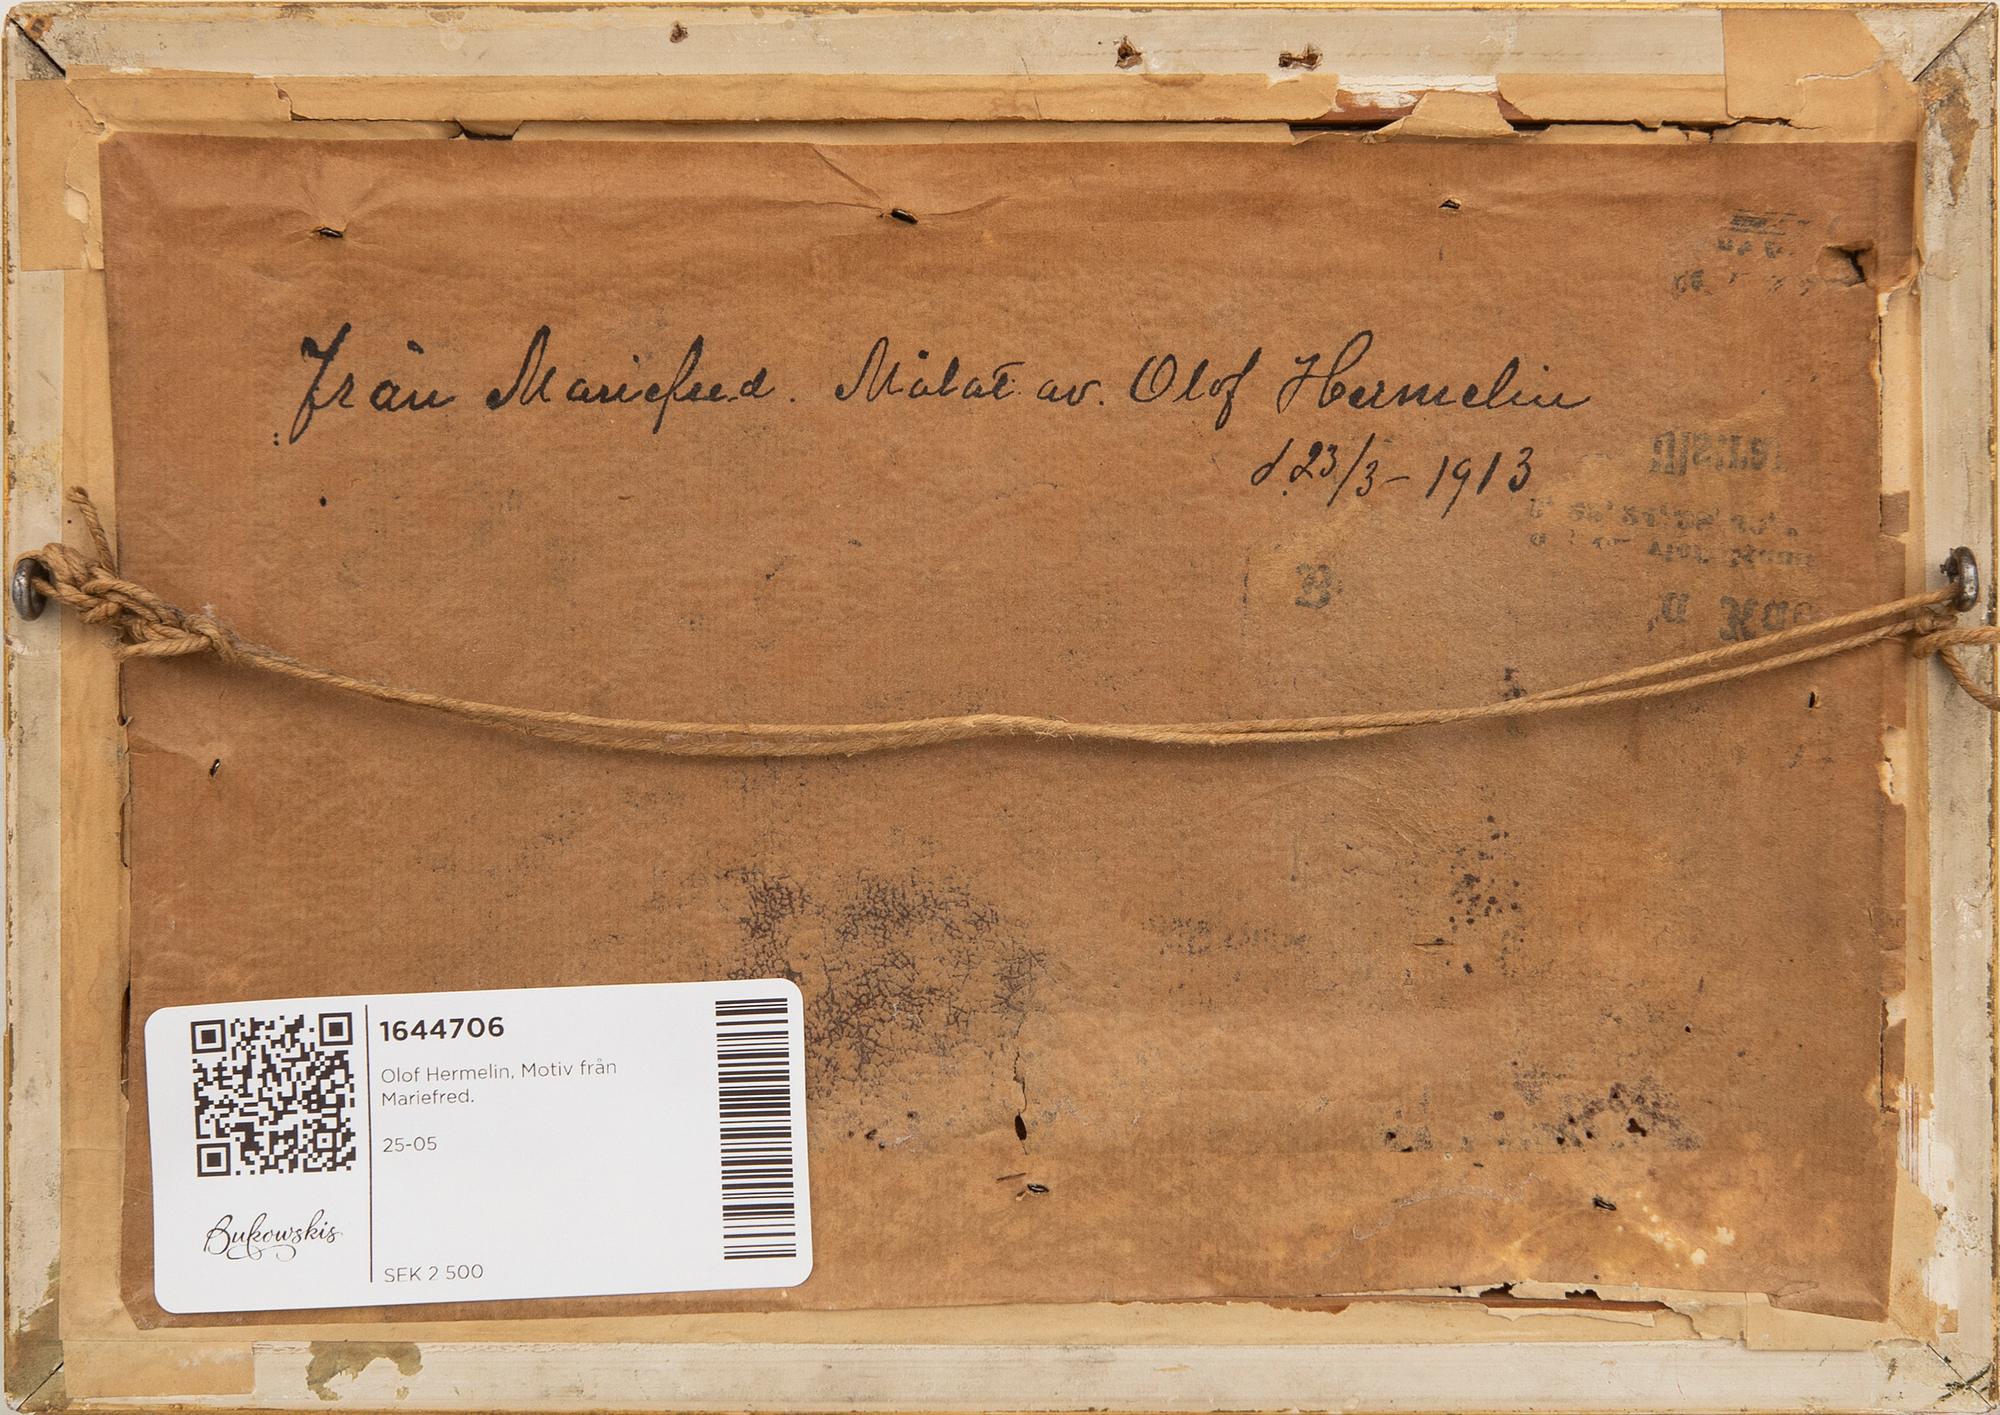 Från Mariefred. Målat av. Olof Hermelin
d. 23/3 - 1913
1644706
Olof Hermelin, Motiv från
Mariefred.
25-05
Bukowskis
SEK 2 500